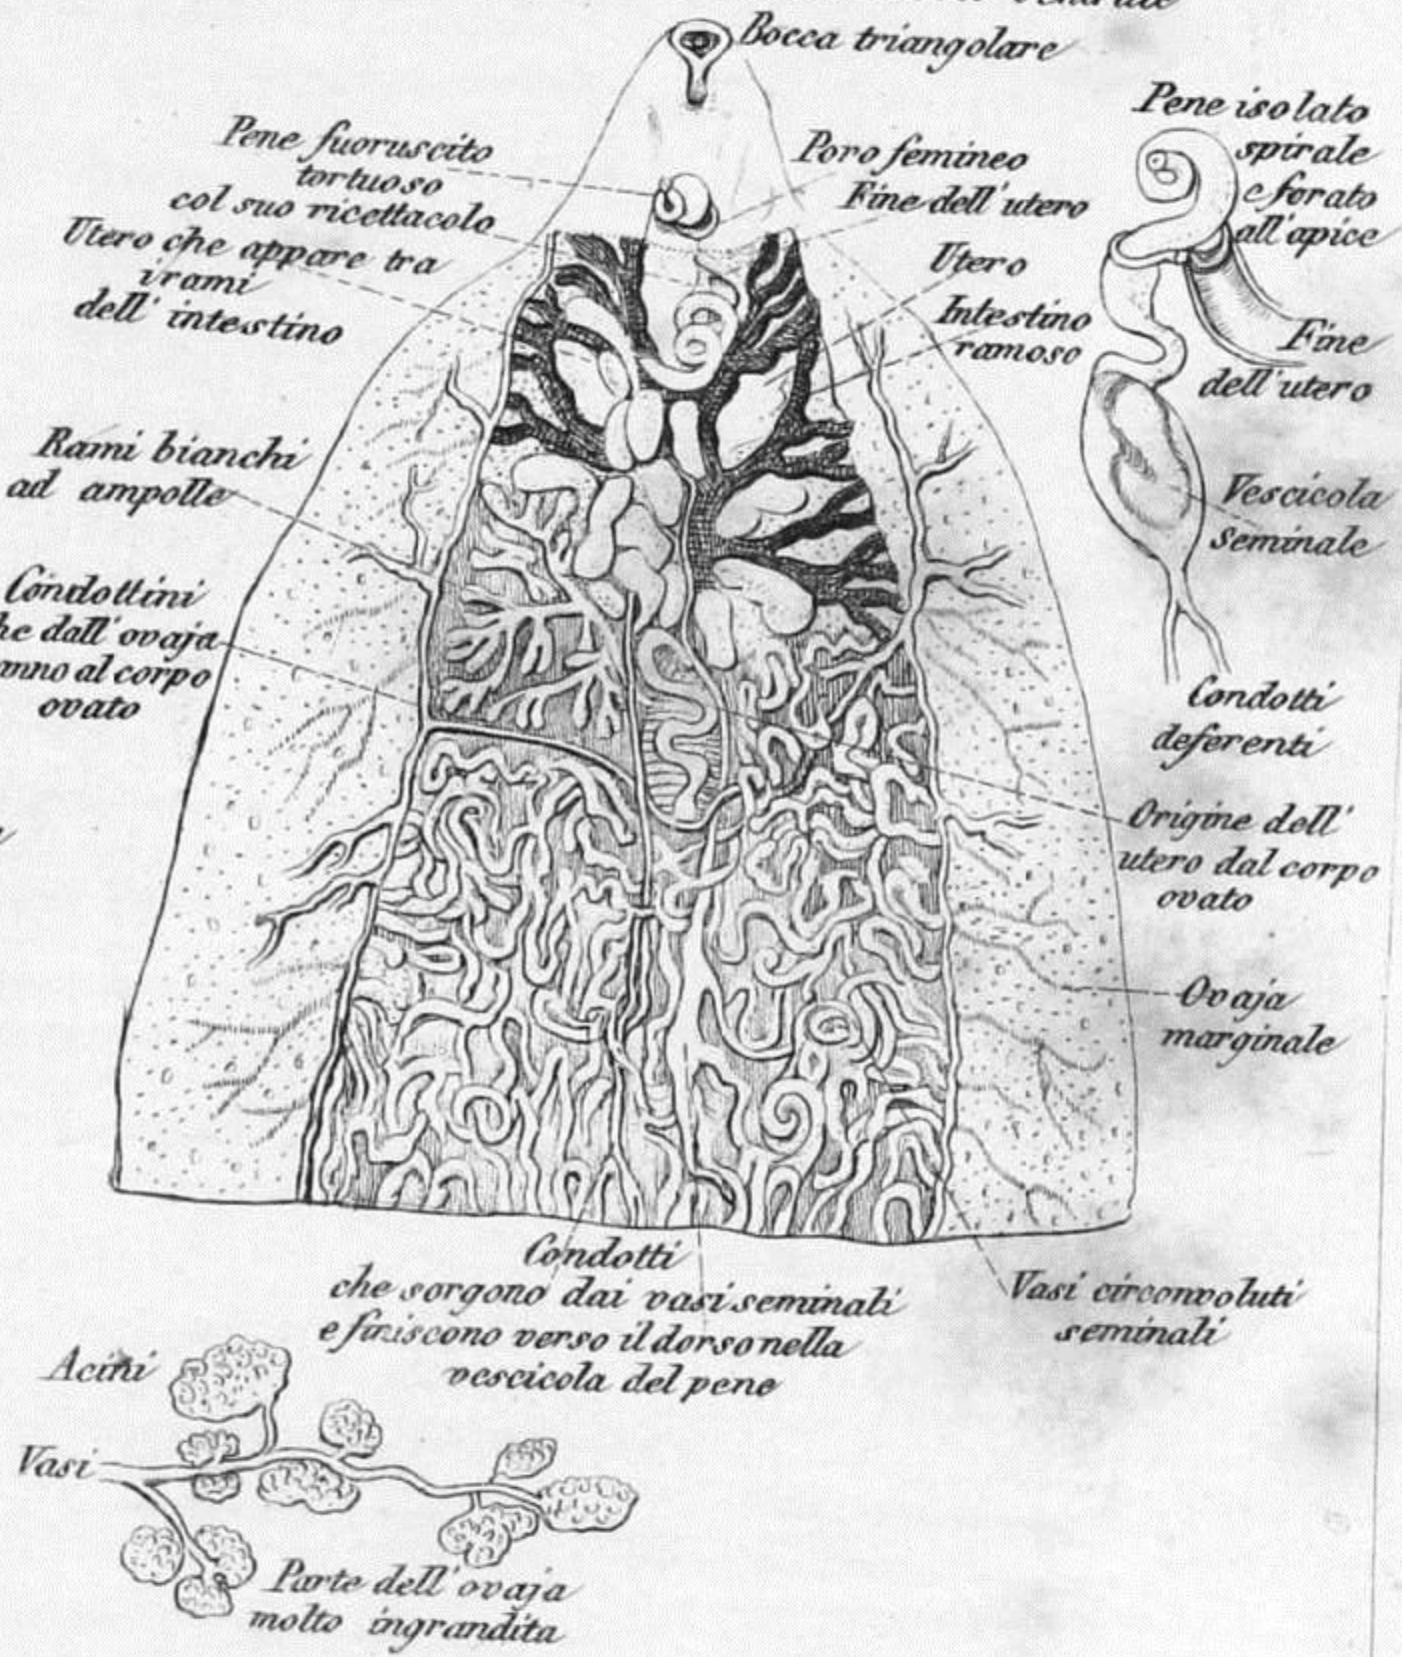 Bocca triangolare
Pene fuoruscito
tortuoso
col suo ricettacolo
Utero che appare tra
i rami
dell' intestino
Poro femineo
Fine dell' utero
Utero
Intestino
ramoso
Pene isolato
spirale
e forato
all'apice
Fine
dell'utero
Vescicola
seminale
Condotti
deferenti
Rami bianchi
ad ampolle
Condottini
he dall' ovaja
anno al corpo
ovato
Origine dell'
utero dal corpo
ovato
Ovaja
marginale
Condotti
che sorgono dai vasi seminali
e finiscono verso il dorso nella
vescicola del pene
Vasi circonvoluti
seminali
Acini
Vasi
Parte dell' ovaja
molto ingrandita